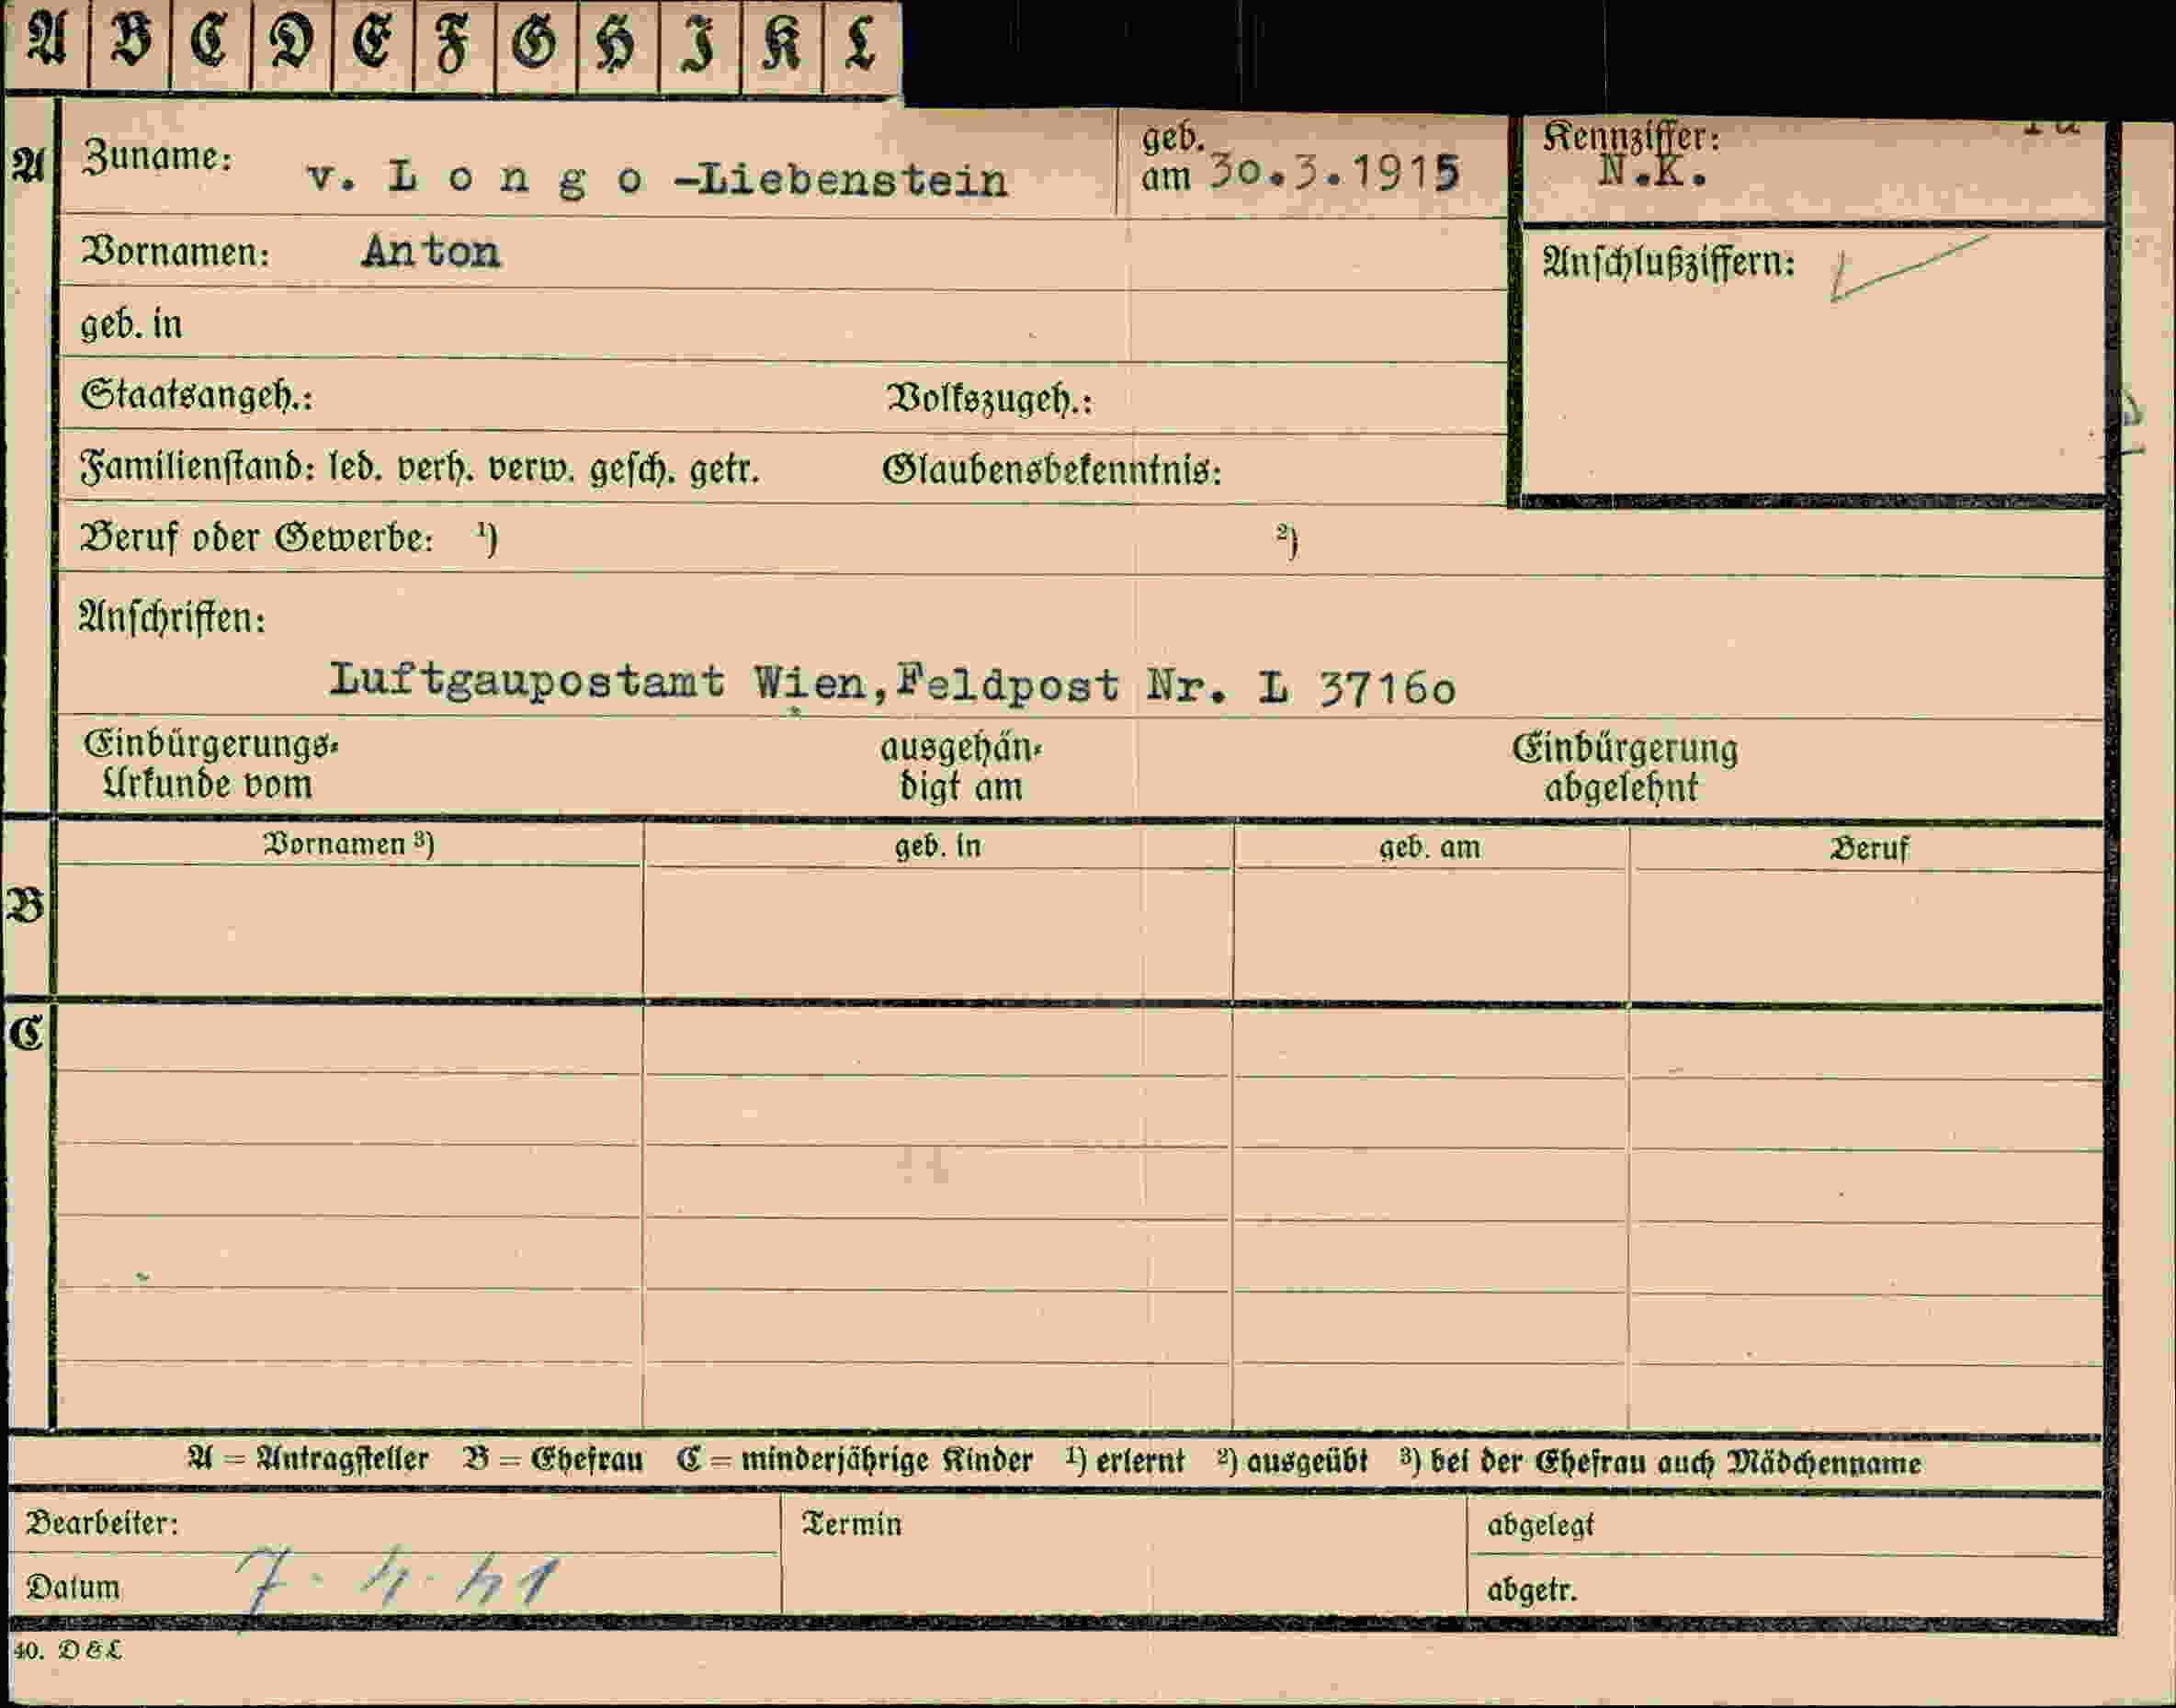 A B C D E F G H I K L
A Zuname: v. L o n g o -Liebenstein geb. am 30.3.1915 Kennziffer: N.K.
Vornamen: Anton Anschlußziffern:
geb. in
Staatsangeh.: Volkszugeh.:
Familienstand: led. verh. verw. gesch. getr. Glaubensbekenntnis:
Beruf oder Gewerbe: ¹) ²)
Anschriften:
Luftgaupostamt Wien,Feldpost Nr. L 37160
Einbürgerungs- ausgehän- Einbürgerung
Urkunde vom digt am abgelehnt
Vornamen ³) geb. in geb. am Beruf
B
C
A = Antragsteller B = Ehefrau C = minderjährige Kinder ¹) erlernt ²) ausgeübt ³) bei der Ehefrau auch Mädchenname
Bearbeiter: Termin abgelegt
Datum 7. 4. 41 abgetr.
40. D & L